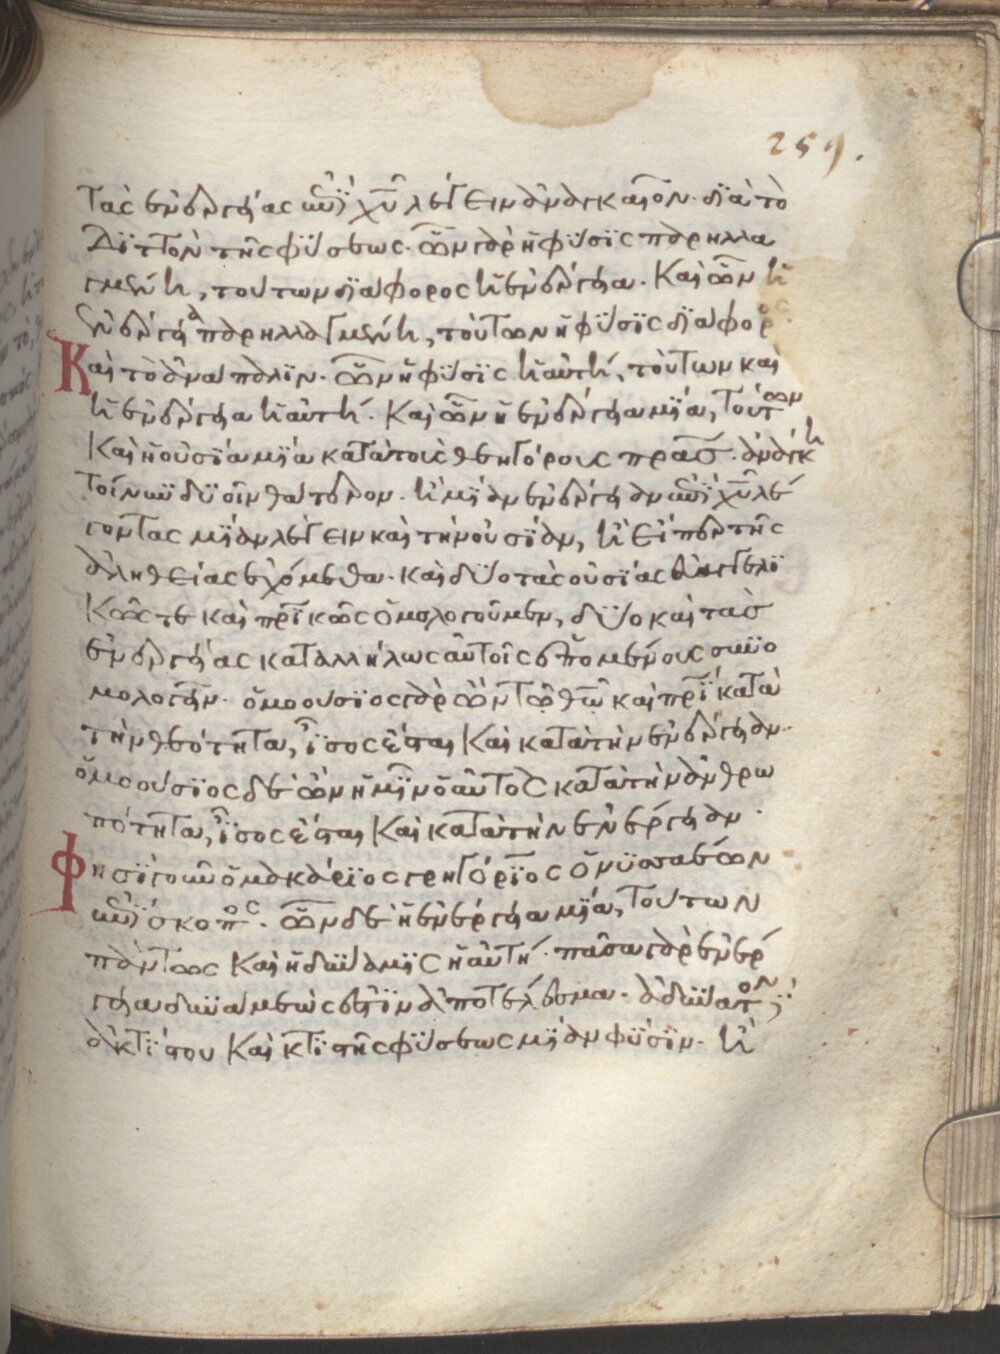 259.
τὰς ἐνεργείας ἐπὶ χυ λέγειν ἀναγκαῖον· διὰ τὸ
διττὸν τῆς φύσεως· ὧν γὰρ ἡ φύσις παρηλλα
γμένη, τούτων διάφορος ἡ ἐνέργεια· Καὶ ὧν ἡ
ἐνέργεια παρηλλαγμένη, τούτων ἡ φύσις διάφορ
Καὶ τὸ ἀνάπαλιν· ὧν ἡ φύσις ἡ αὐτή, τούτων καὶ
ἡ ἐνέργεια ἡ αὐτή· Καὶ ὧν ἡ ἐνέργεια μία, τούτων
Καὶ ἡ οὐσία μία κατὰ τοὺς θεηγόρους πρας· ἀνάγκη
τοίνυν δυοῖν θάτερον· ἢ μίαν ἐνέργειαν ἐπὶ χυ λέ
γοντας μίαν λέγειν καὶ τὴν οὐσίαν, ἢ εἴπερ τῆς
ἀληθείας ἐχόμεθα· καὶ δύο τὰς οὐσίας εὐαγγελι
κῶς τε καὶ πρικῶς ὁμολογοῦμεν, δύο καὶ τὰς
ἐνεργείας καταλλήλως αὐτοῖς ἑπομένους συνο
μολογεῖν· ὁμοούσιος γὰρ ὢν τῷ θω καὶ πρι κατὰ
τὴν θεότητα, ἴσος ἔσται Καὶ κατὰ τὴν ἐνέργειαν·
ὁμοούσιος δὲ ὢν ἡμῖν ὁ αὐτὸς κατὰ τὴν ἀνθρω
πότητα, ἴσος ἔσται Καὶ κατὰ τὴν ἐνέργειαν·
Φησὶ γοῦν ὁ μακάριος γρηγόριος ὁ νυσσαέων
ἐπίσκοπος· ὧν δὲ ἡ ἐνέργεια μία, τούτων
πάντως Καὶ ἡ δύναμις ἡ αὐτή· πᾶσα γὰρ ἐνέρ
γεια δυνάμεώς ἐστιν ἀποτέλεσμα· ἀδύνατον δὲ
ἀκτίστου Καὶ κτιστῆς φύσεως μίαν φύσιν· ἢ